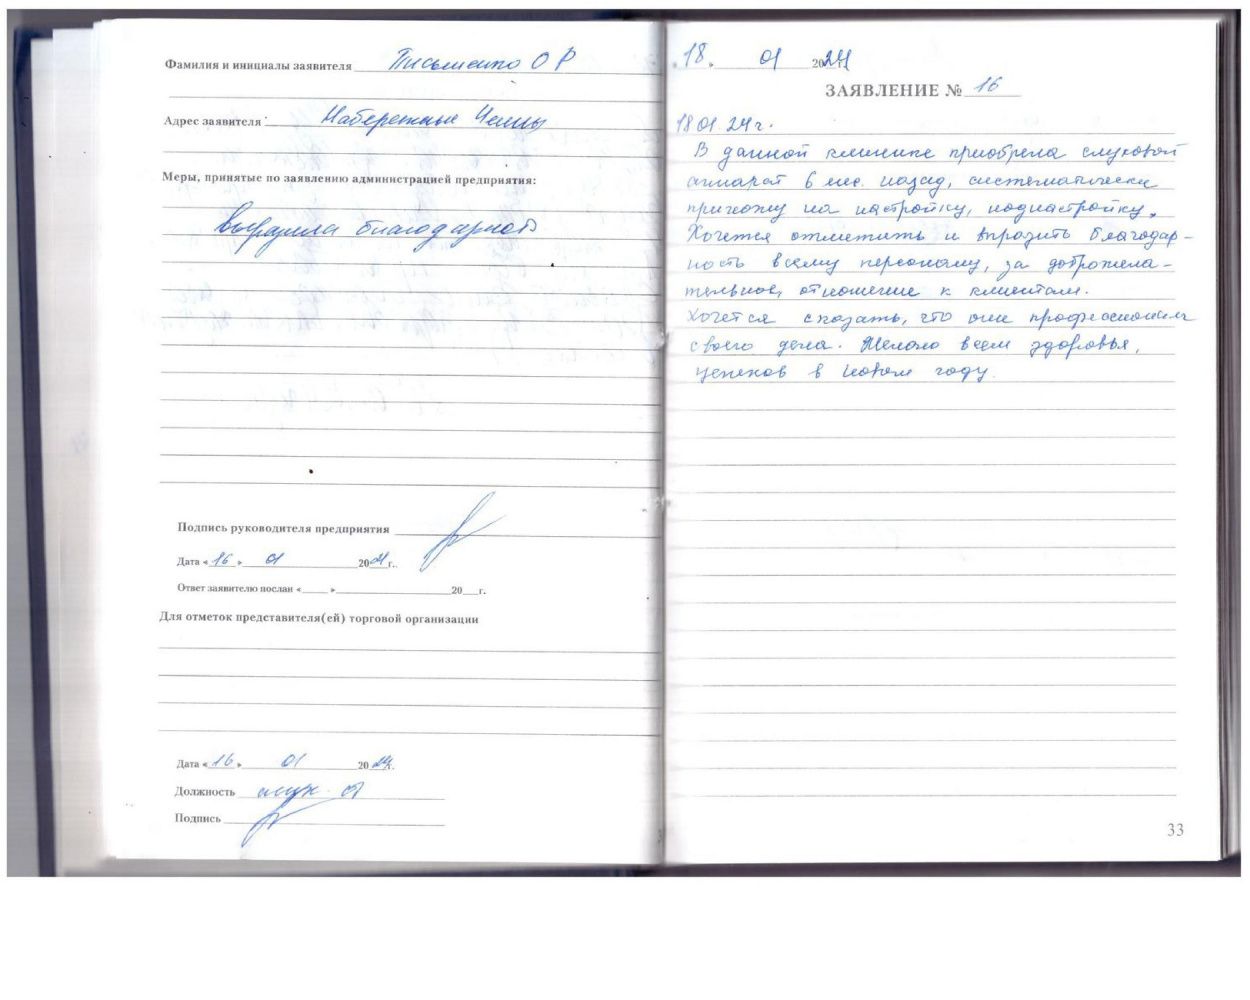 Фамилия и инициалы заявителя Письменко О Р
Адрес заявителя: Набережные Челны
Меры, принятые по заявлению администрацией предприятия:
Выразила благодарность
Подпись руководителя предприятия
Дата «16» 01 2024г.
Ответ заявителю послан «____ »____________20___г.
Для отметок представителя(ей) торговой организации
Дата «16» 01 2024г.
Должность
Подпись
18. 01 2024
ЗАЯВЛЕНИЕ № 16
18 01 24г.
В данной клинике приобрела слуховой
аппарат 6 мес. назад, систематически
прихожу на настройку, поднастройку.
Хочется отметить и впразить благодар-
ность всему персоналу, за доброжела-
тельное, отношение к клиентам.
Хочется сказать, что они профессионалы
своего дела. Желаю всем здоровья,
успехов в новом году.
33